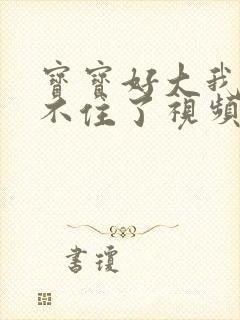 寶寶好大我
不住了視頻
書瓊